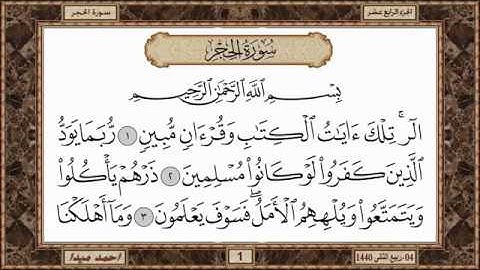 سورة الحجر
الجزء الرابع عشر
سُورَةُ الحِجْرِ
بِسْمِ اللَّهِ الرَّحْمَٰنِ الرَّحِيمِ
الٓر ۚ تِلْكَ ءَايَٰتُ الْكِتَٰبِ وَقُرْءَانٍ مُّبِينٍ ١ رُّبَمَا يَوَدُّ
الَّذِينَ كَفَرُوا۟ لَوْ كَانُوا۟ مُسْلِمِينَ ٢ ذَرْهُمْ يَأْكُلُوا۟
وَيَتَمَتَّعُوا۟ وَيُلْهِهِمُ الْأَمَلُ ۖ فَسَوْفَ يَعْلَمُونَ ٣ وَمَآ أَهْلَكْنَا
04- ربيع الثاني 1440
1